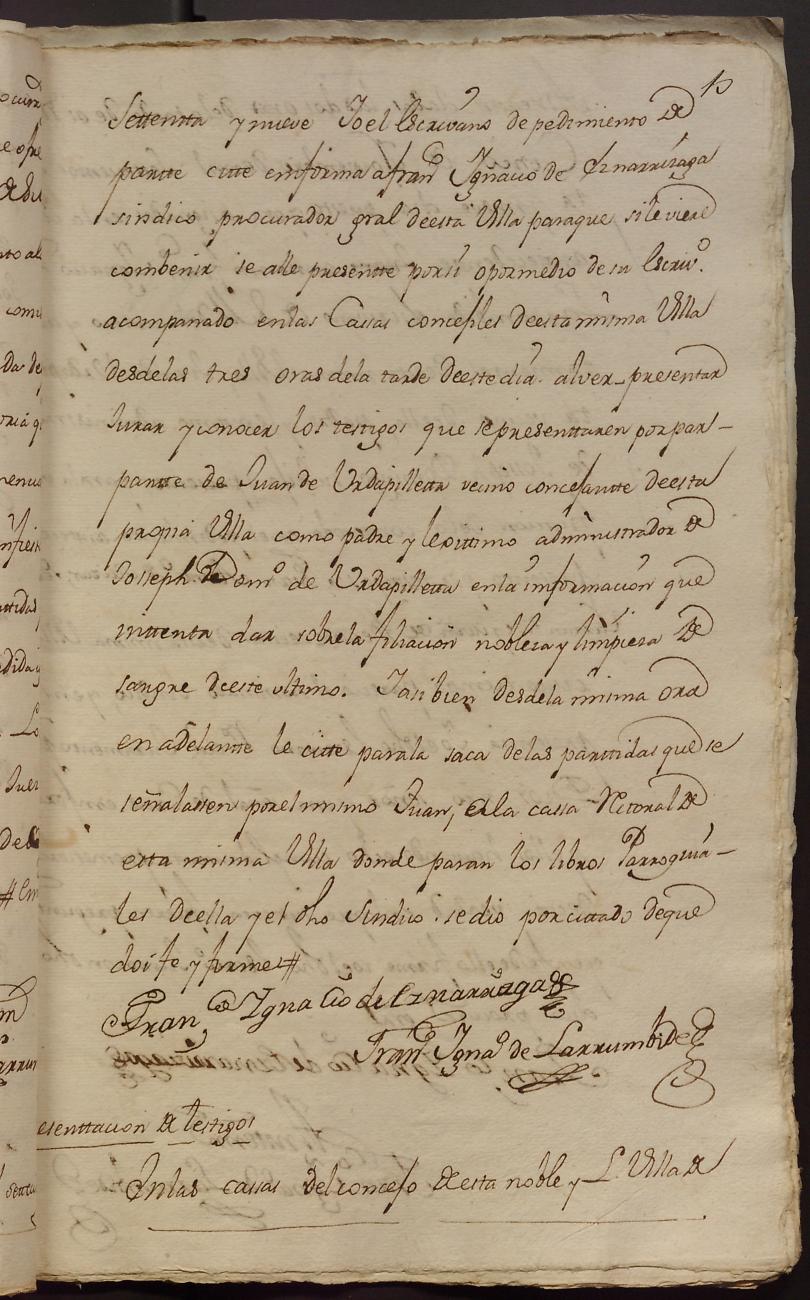 Settentta y nueve Yo el Escrivano de pedimiento de
partte citte en forma a Fran.co Ygnacio de Eznarrizaga
sindico procurador gral deesta Villa paraque si le viere
combenir se alle presentte porsi o pormedio de su Escriv.o
acompanado enlas Cassas concejiles deesta misma Villa
desdelas tres oras dela tarde deeste dia. alver presentar
Jurar y conocer los testigos que se presenttaren por par-
partte de Juan de Urdapilletta vecino concejantte deesta
propia Villa como padre y lexittimo administrador de
Joseph Dom.o de Urdapilletta enla informacion que
inttenta dar sobrela filiacion nobleza y limpieza de
sangre deeste ultimo. Yasibien desdela misma ora
en adelantte le citte parala saca delas parttidas que se
señalassen porel mismo Juan, ala cassa Retoral de
esta misma Villa donde paran los libros Parroquia-
les deella y el dho Sindico se dio por citado deque
doi fe y firme#
Fran.co Ygnacio de Eznarrizaga
Fran.co Ygn.o de Larrumbide
esenttacion de testigos
Enlas cassas del concejo deesta noble y L. Villa de